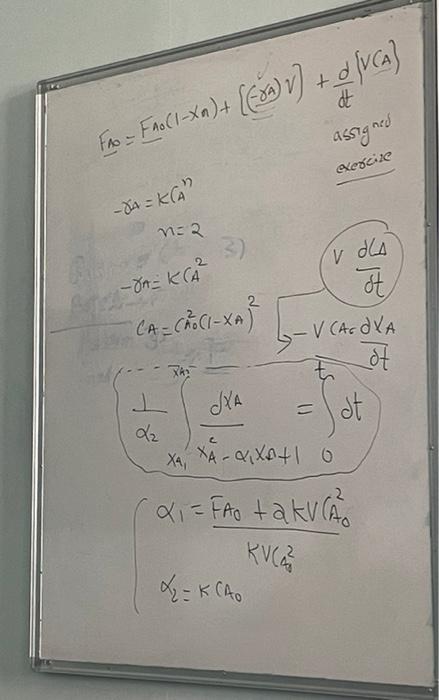 F_A0 = F_A0(1-X_A) + [(-r_A)V] + d/dt [VC_A]
assigned
exercise
-r_A = kC_A^n
n = 2
-r_A = kC_A^2
V dC_A/dt
C_A = C_A0^2(1-X_A)^2
-VC_A0 dX_A/dt
1/α_2 ∫_{X_A1}^{X_A2} dX_A/(X_A^2 - α_1X_A + 1) = ∫_0^t dt
α_1 = (F_A0 + 2kVC_A0^2)/(kVC_A0^2)
α_2 = kC_A0